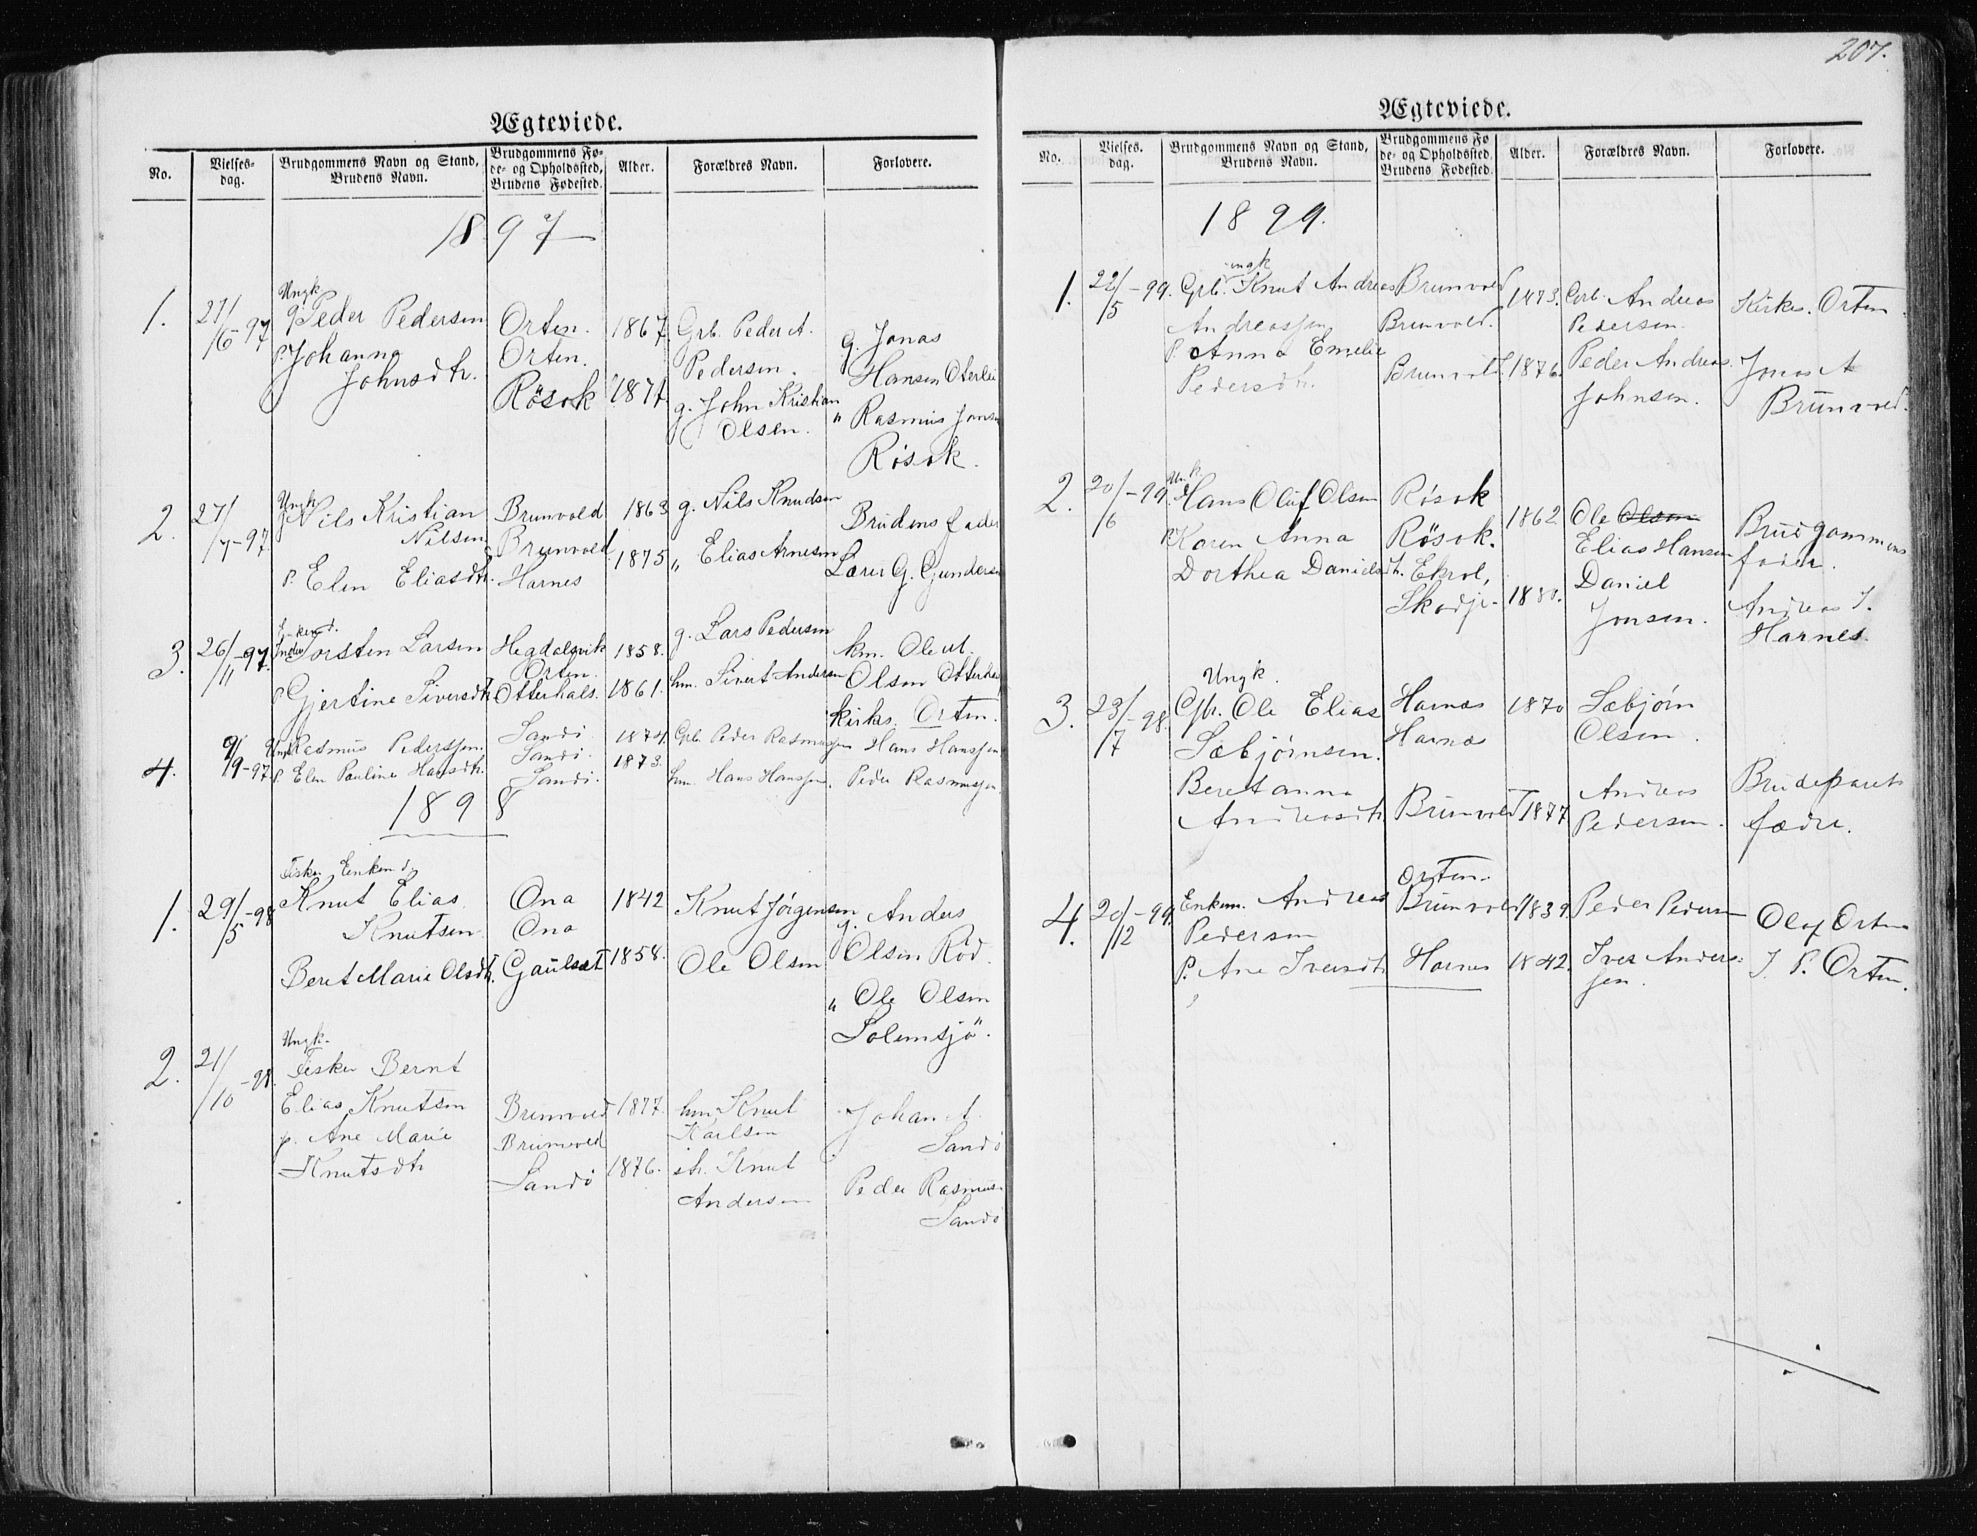 207.
Ægteviede.
No. Vielses-dag. Brudgommens Navn og Stand, Brudens Navn. Brudgommens Fø-de- og Opholdssted, Brudens Fødested. Alder. Forældres Navn. Forlovere.
1897
Ungk
1. 27/6-97 g Peder Pedersen Orten. 1867. Grb. Peder A. g. Jonas
p Johanna Orten. Pedersen. Hansen Oterlei
Johnsdtr. Røsok 1871. g. John Kristian " Rasmus Jonsen
Olsen. Røsok.
Ungk
2. 27/7-97 Nils Kristian Brunvold 1863 g. Nils Knudsen Brudens fader
Nilsen Brunvold
p. Elen Eliasdtr. Harnes 1875 " Elias Arnesen Lærer G. Gundersen
3. 26/11-97. Torsten Larsen Hegdalsvik 1858. g. Lars Pedersen km. Ole M.
Orten.
p Gjertine Siversdtr Otterhals. 1861. hm. Sivert Andersen Olsen Otterhals
kirks. Orten.
4. 9/9-97 Ungk Rasmus Pederssen Sandö 1874. Grb. Peder Rasmussen Hans Hanssen
Sandö.
p. Elen Pauline Hansdtr. Sandö. 1873. hm. Hans Hanssen. Peder Rasmussen.
1898
Fisker Enkem d.
1. 29/5-98 Knut Elias Ona 1842 Knut Jörgensen g. Anders
Knutsen Ona Olsen Röd.
Beret Marie Olsdtr. Gaulset 1858. Ole Olsen " Ole Olsen
Solemsjö".
Ungk.
2. 21/10-98. Fisker Bernt
Elias Knutsen Brunvold 1877. hm Knut Johan A.
p. Ane Marie Brunvold Karlsen Sandö
Knutsdtr Sandö 1876. Knut Peder Rasmus.
Andersen Sandö
Ægteviede.
No. Vielses-dag. Brudgommens Navn og Stand, Brudens Navn. Brudgommens Fø-de- og Opholdssted, Brudens Fødested. Alder. Forældres Navn. Forlovere.
1899.
ungk
1. 22/5-99. Grb. Knut Andreas Brunvold 1873. Grb. Andreas Kirkes. Orten.
Andreassen Brunvold. Pedersen.
p. Anna Emelie Brunvold. 1876. Peder Andreas Jonas A
Pedersdtr. Johnsen. Brunvold.
Un.k
2. 20/6-99. Hans Oluf Olsen Røsok 1862. Ole Olsen Brudgommens
p Karen Anna Røsok. Elias Hansen fader.
Dorthea Danielsdtr. Ekrol, 1880. Daniel Andreas I.
Skodje- Jonsen. Harnes.
Ungk.
3. 23/7-98. Gbr. Ole Elias Harnes 1870 Sæbjørn
Sæbjørnsen. Harnes Olsen.
Beret anna Brunvold 1877 Andreas Brudeparets
Andreasdtr. Pedersen. fædre.
Orten.
4. 20/12-99. Enkem. Andreas Brunvold 1839. Peder Pedersen Olof Orten
Pedersen
p. Ane Iversdtr. Harnes 1842. Iver Anders- I. P. Orten.
sen.